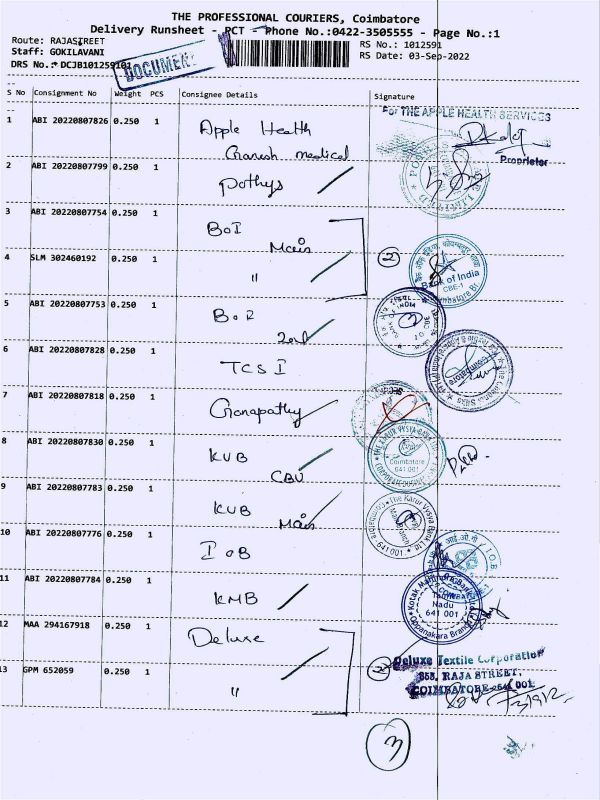 THE PROFESSIONAL COURIERS, Coimbatore
Delivery Runsheet - PCT - Phone No.:0422-3505555 - Page No.:1
Route: RAJASTREET
RS No.: 1012591
Staff: GOKILAVANI
RS Date: 03-Sep-2022
DRS No.: DCJB101259101
DOCUMENT
S No Consignment No Weight PCS Consignee Details Signature
1 ABI 20220807826 0.250 1 Apple Health
For THE APPLE HEALTH SERVICES
Ganesh medical
Proprietor
2 ABI 20220807799 0.250 1 Pothys
3 ABI 20220807754 0.250 1 BOI
Main
4 SLM 302460192 0.250 1 "
2
Bank of India
CBE-1
Coimbatore
5 ABI 20220807753 0.250 1 BOR
6 ABI 20220807828 0.250 1 TCS I
7 ABI 20220807818 0.250 1 Ganapathy
8 ABI 20220807830 0.250 1 KVB
CBU
THE KARUR VYSYA BANK
Coimbatore
641 001
9 ABI 20220807783 0.250 1 KUB
Main
The Karur Vysya Bank Ltd
Coimbatore - 641 001
10 ABI 20220807776 0.250 1 IOB
आई.ओ.बी / I.O.B
11 ABI 20220807784 0.250 1 KMB
Kotak Mahindra Bank
Tamil
Nadu
641 001
Oppanakara Branch
12 MAA 294167918 0.250 1 Deluxe
13 GPM 652059 0.250 1 "
2
Deluxe Textile Corporation
RAJA STREET,
COIMBATORE-641 001
3